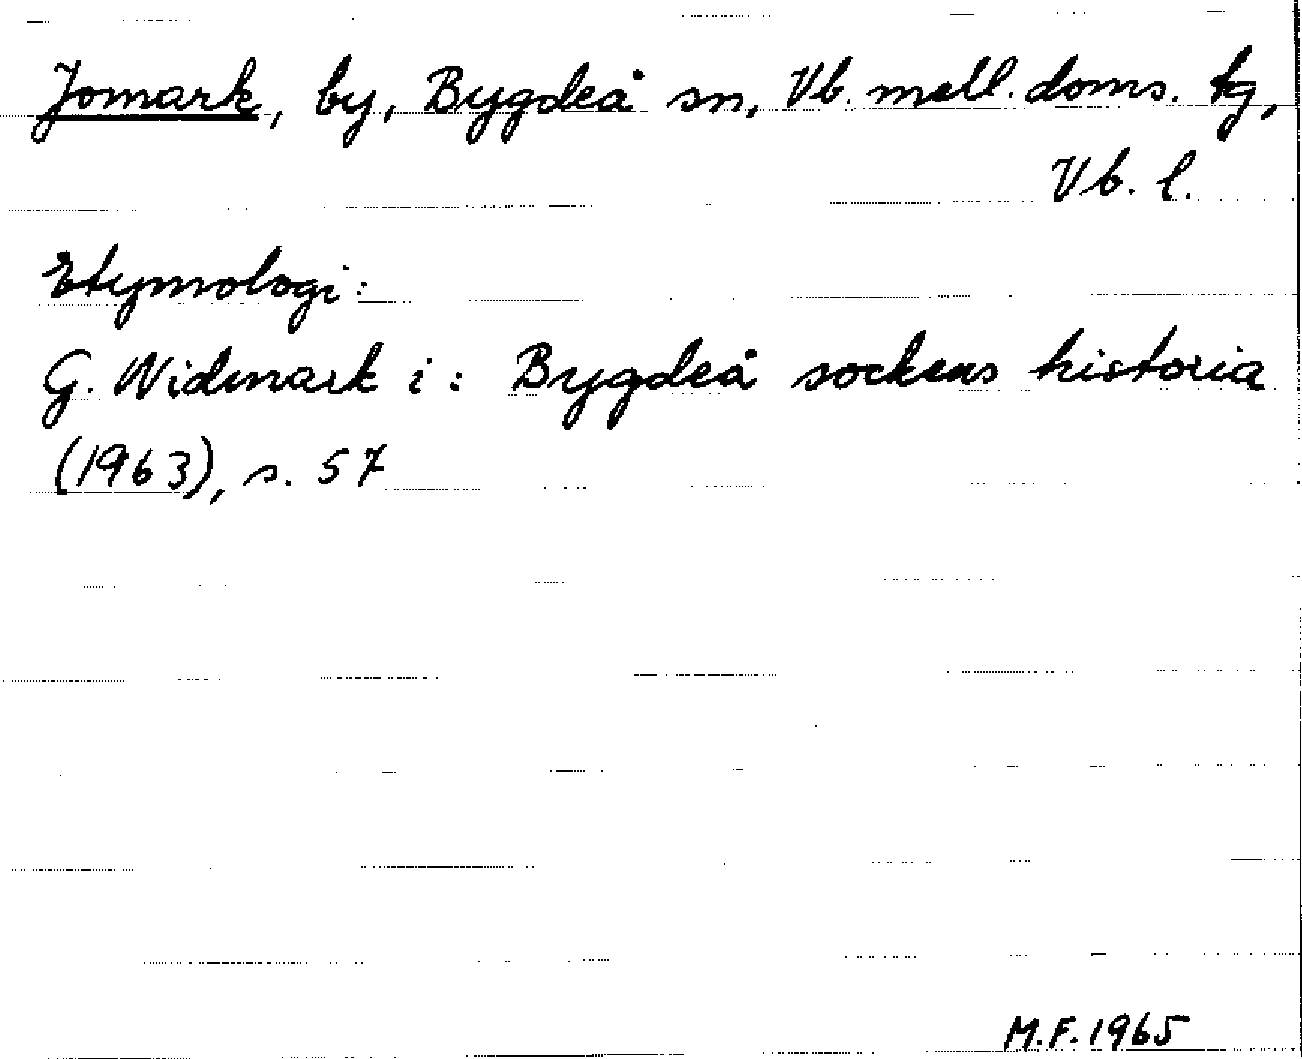 Jomark, by, Bygdeå sn, Vb. mell. doms. tg,
Vb. l.
Etymologi:
G. Widmark i: Bygdeå sockens historia
(1963), s. 57
M.F. 1965